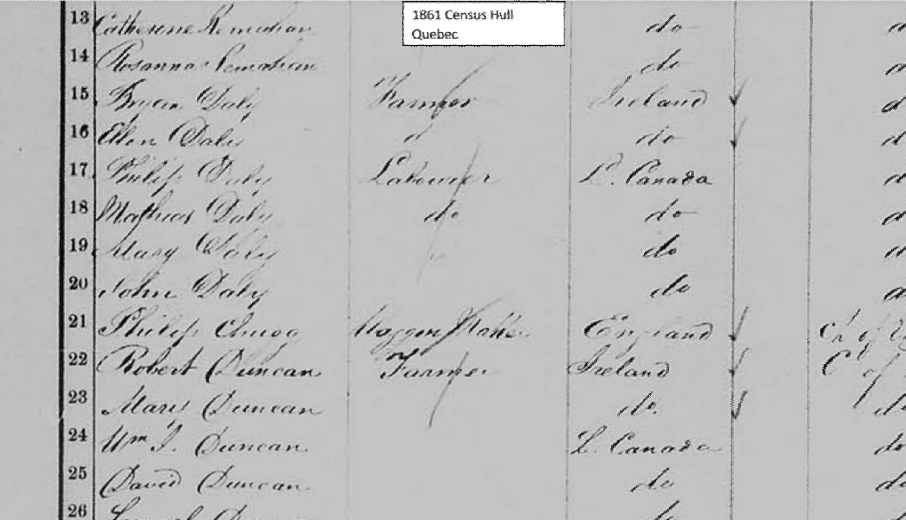 1861 Census Hull
Quebec
13 Catherine do
14 Rosanna do
15 Bryan Daly Farmer Ireland
16 Ellen Daly d do
17 Philip Daly Labourer L. Canada
18 Mathias Daly do do
19 Mary Daly do
20 John Daly do
21 Philip Waggon Make England
22 Robert Duncan Farmer Ireland C of
23 Mary Duncan do. do
24 Wm J. Duncan L. Canada do
25 David Duncan do do
26 Samuel Duncan do